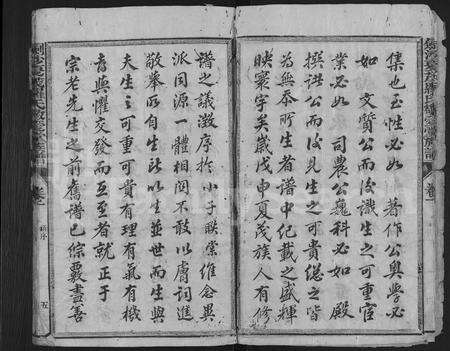 集也至性必如 著作公與學必
如 文贊公而後識生之可重官
業必如 司農公巍科必如 殿
撰公而後見生之可貴總之皆
為無忝所生者譜中紀載之盛輝
映寰宇矣歲戊申夏茂族人有修
譜之議徵序於小子聯棠維念與
派同源一體相関不敢以膚詞進
敬舉所自生以及並世而生與
夫生之可重可貴有理有氣有機
者與懼交發而互至者就正于
宗老先生之前舊譜已綜覈盡善
五